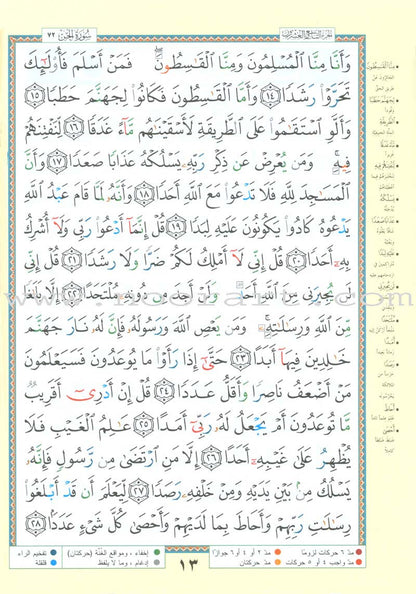 سُورَةُ الجِنّ ٧٢
وَأَنَّا مِنَّا الْمُسْلِمُونَ وَمِنَّا الْقَاسِطُونَ فَمَنْ أَسْلَمَ فَأُولَٰئِكَ
تَحَرَّوْا رَشَدًا ١٤ وَأَمَّا الْقَاسِطُونَ فَكَانُوا لِجَهَنَّمَ حَطَبًا ١٥
وَأَلَّوِ اسْتَقَامُوا عَلَى الطَّرِيقَةِ لَأَسْقَيْنَاهُم مَّاءً غَدَقًا ١٦ لِّنَفْتِنَهُمْ
فِيهِ وَمَن يُعْرِضْ عَن ذِكْرِ رَبِّهِ يَسْلُكْهُ عَذَابًا صَعَدًا ١٧ وَأَنَّ
الْمَسَاجِدَ لِلَّهِ فَلَا تَدْعُوا مَعَ اللَّهِ أَحَدًا ١٨ وَأَنَّهُ لَمَّا قَامَ عَبْدُ اللَّهِ
يَدْعُوهُ كَادُوا يَكُونُونَ عَلَيْهِ لِبَدًا ١٩ قُلْ إِنَّمَا أَدْعُوا رَبِّي وَلَا أُشْرِكُ
بِهِ أَحَدًا ٢٠ قُلْ إِنِّي لَا أَمْلِكُ لَكُمْ ضَرًّا وَلَا رَشَدًا ٢١ قُلْ إِنِّي
لَن يُجِيرَنِي مِنَ اللَّهِ أَحَدٌ وَلَنْ أَجِدَ مِن دُونِهِ مُلْتَحَدًا ٢٢ إِلَّا بَلَاغًا
مِّنَ اللَّهِ وَرِسَالَاتِهِ وَمَن يَعْصِ اللَّهَ وَرَسُولَهُ فَإِنَّ لَهُ نَارَ جَهَنَّمَ
خَالِدِينَ فِيهَا أَبَدًا ٢٣ حَتَّىٰ إِذَا رَأَوْا مَا يُوعَدُونَ فَسَيَعْلَمُونَ
مَنْ أَضْعَفُ نَاصِرًا وَأَقَلُّ عَدَدًا ٢٤ قُلْ إِنْ أَدْرِي أَقَرِيبٌ
مَّا تُوعَدُونَ أَمْ يَجْعَلُ لَهُ رَبِّي أَمَدًا ٢٥ عَالِمُ الْغَيْبِ فَلَا
يُظْهِرُ عَلَىٰ غَيْبِهِ أَحَدًا ٢٦ إِلَّا مَنِ ارْتَضَىٰ مِن رَّسُولٍ فَإِنَّهُ
يَسْلُكُ مِن بَيْنِ يَدَيْهِ وَمِنْ خَلْفِهِ رَصَدًا ٢٧ لِّيَعْلَمَ أَن قَدْ أَبْلَغُوا
رِسَالَاتِ رَبِّهِمْ وَأَحَاطَ بِمَا لَدَيْهِمْ وَأَحْصَىٰ كُلَّ شَيْءٍ عَدَدًا ٢٨
مدّ ٦ حركات لزومًا مدّ ٢ أو ٤ أو ٦ جوازًا إخفاء، ومواقع الغُنَّة (حركتان) تفخيم الراء
مدّ واجب ٤ أو ٥ حركات مدّ حركتان إدغام، وما لا يلفظ قلقلة
١٣